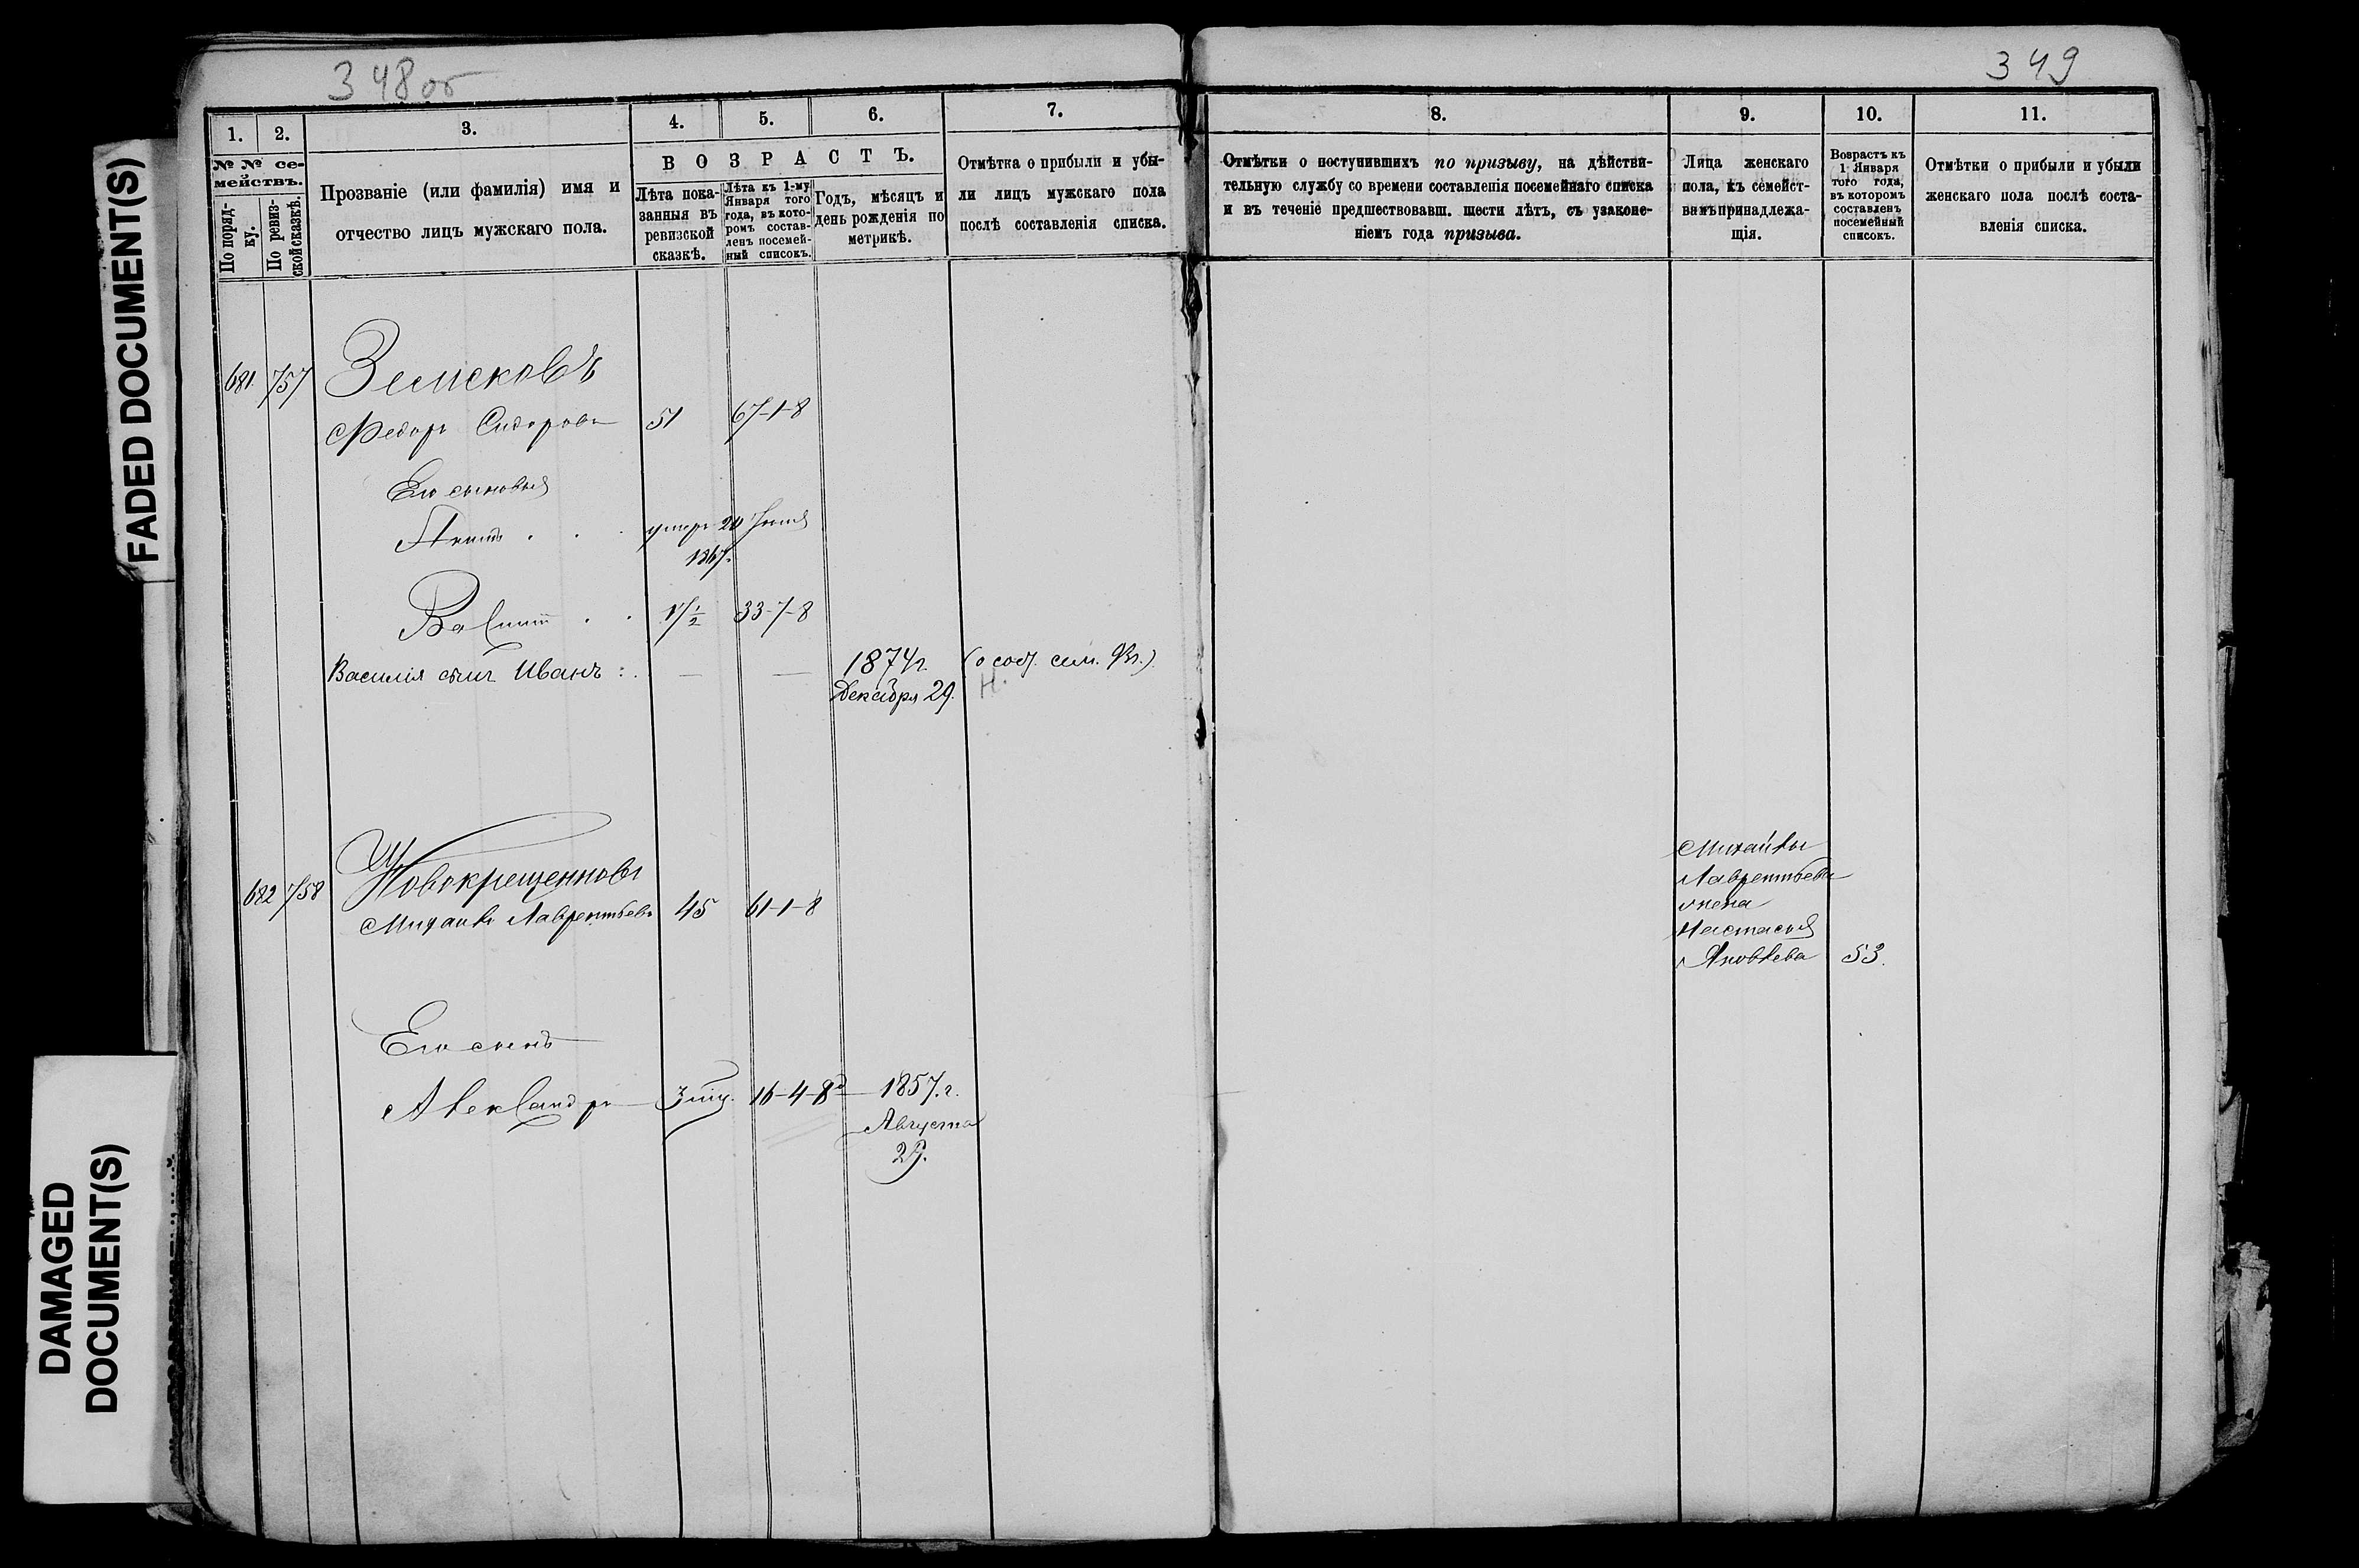 FADED DOCUMENT(S)
DAMAGED
DOCUMENT(S)
348об
349
1.
2.
3.
4.
5.
6.
7.
8.
9.
10.
11.
№ № се-
мействъ.
По поряд-
ку.
По ревиз-
ской сказкѣ.
Прозваніе (или фамилія) имя и
отчество лицъ мужскаго пола.
ВОЗРАСТЪ.
Лѣта пока-
занныя въ
ревизской
сказкѣ.
Лѣта къ 1-му
Января того
года, въ кото-
ромъ состав-
ленъ посемей-
ный списокъ.
Годъ, мѣсяцъ и
день рожденія по
метрикѣ.
Отмѣтка о прибыли и убы-
ли лицъ мужскаго пола
послѣ составленія списка.
Отмѣтки о поступившихъ по призыву, на дѣйстви-
тельную службу со времени составленія посемейнаго списка
и въ теченіе предшествовавш. шести лѣтъ, съ узаконе-
ніемъ года призыва.
Лица женскаго
пола, къ семейст-
вамъ принадлежа-
щія.
Возрастъ къ
1 Января
того года,
въ которомъ
составленъ
посемейный
списокъ.
Отмѣтки о прибыли и убыли
женскаго пола послѣ соста-
вленія списка.
681. 757 Земсковъ
Федоръ Сидоровъ 51 67-1-8
Его сыновья
умеръ 20
1867.
Василій . . 17½ 33-7-8
Василія сынъ Иванъ : . — — 1874г. (о соб. сем.
Декабря 29. Н.
682 758 Новокрещенновъ
Михаилъ Лаврентьевъ 45 61-1-8
Михайлы
Лаврентьева
жена
Настасья
Яковлева 53.
Его сынъ
Александръ 16-4-8 1857.г.
Августа
29.